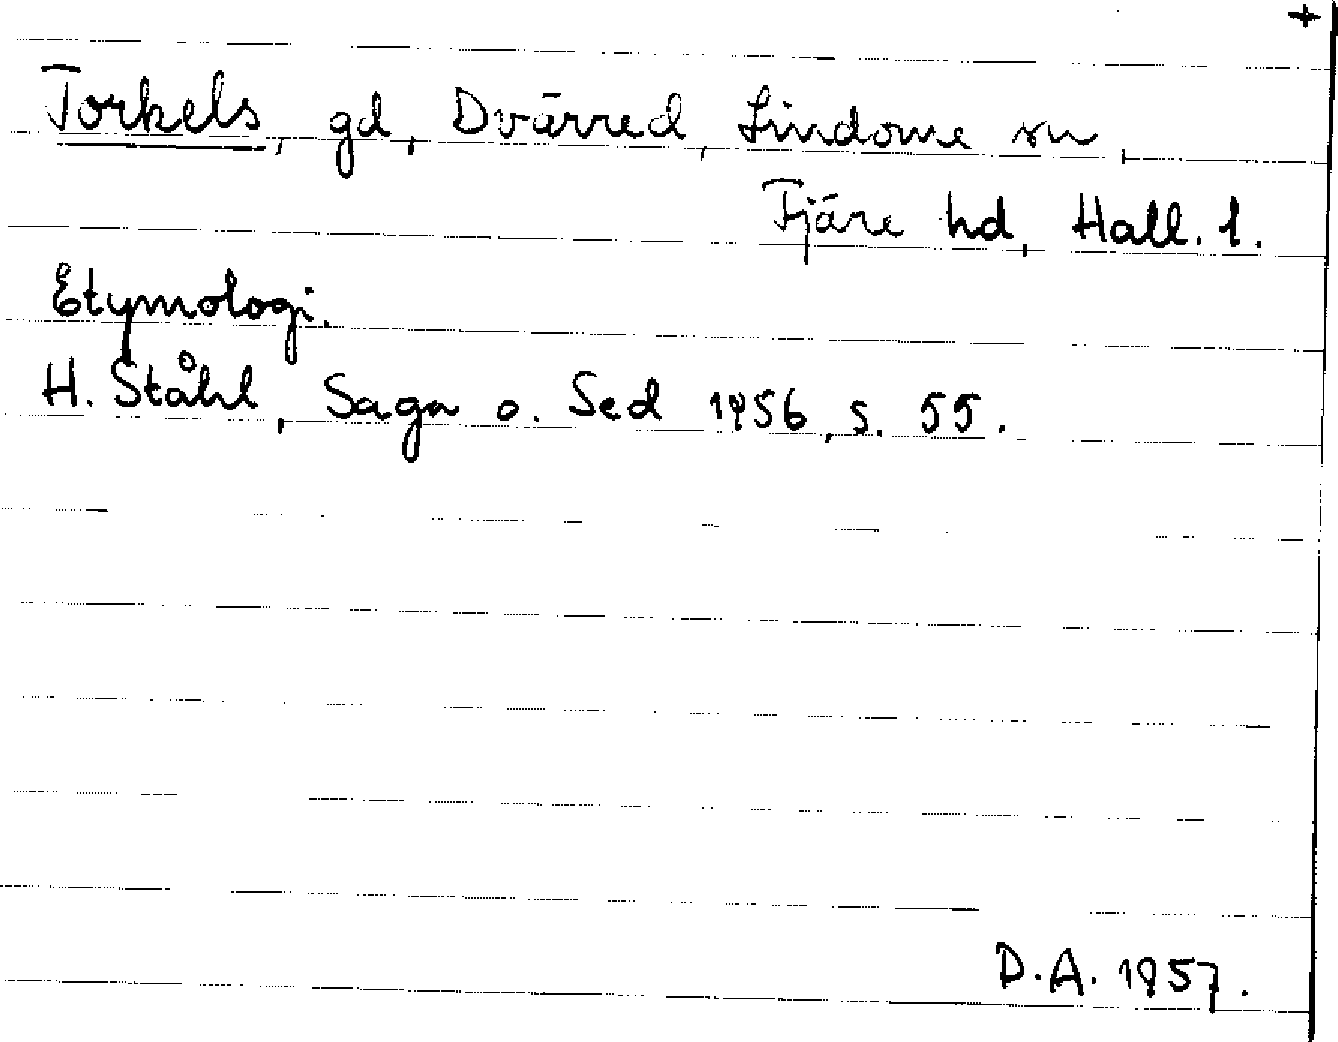 +
Torkels, gd, Dvärred, Lindome sn,
Fjäre hd, Hall. l.
Etymologi.
H. Ståhl, Saga o. Sed 1956, s. 55.
D.A. 1957.